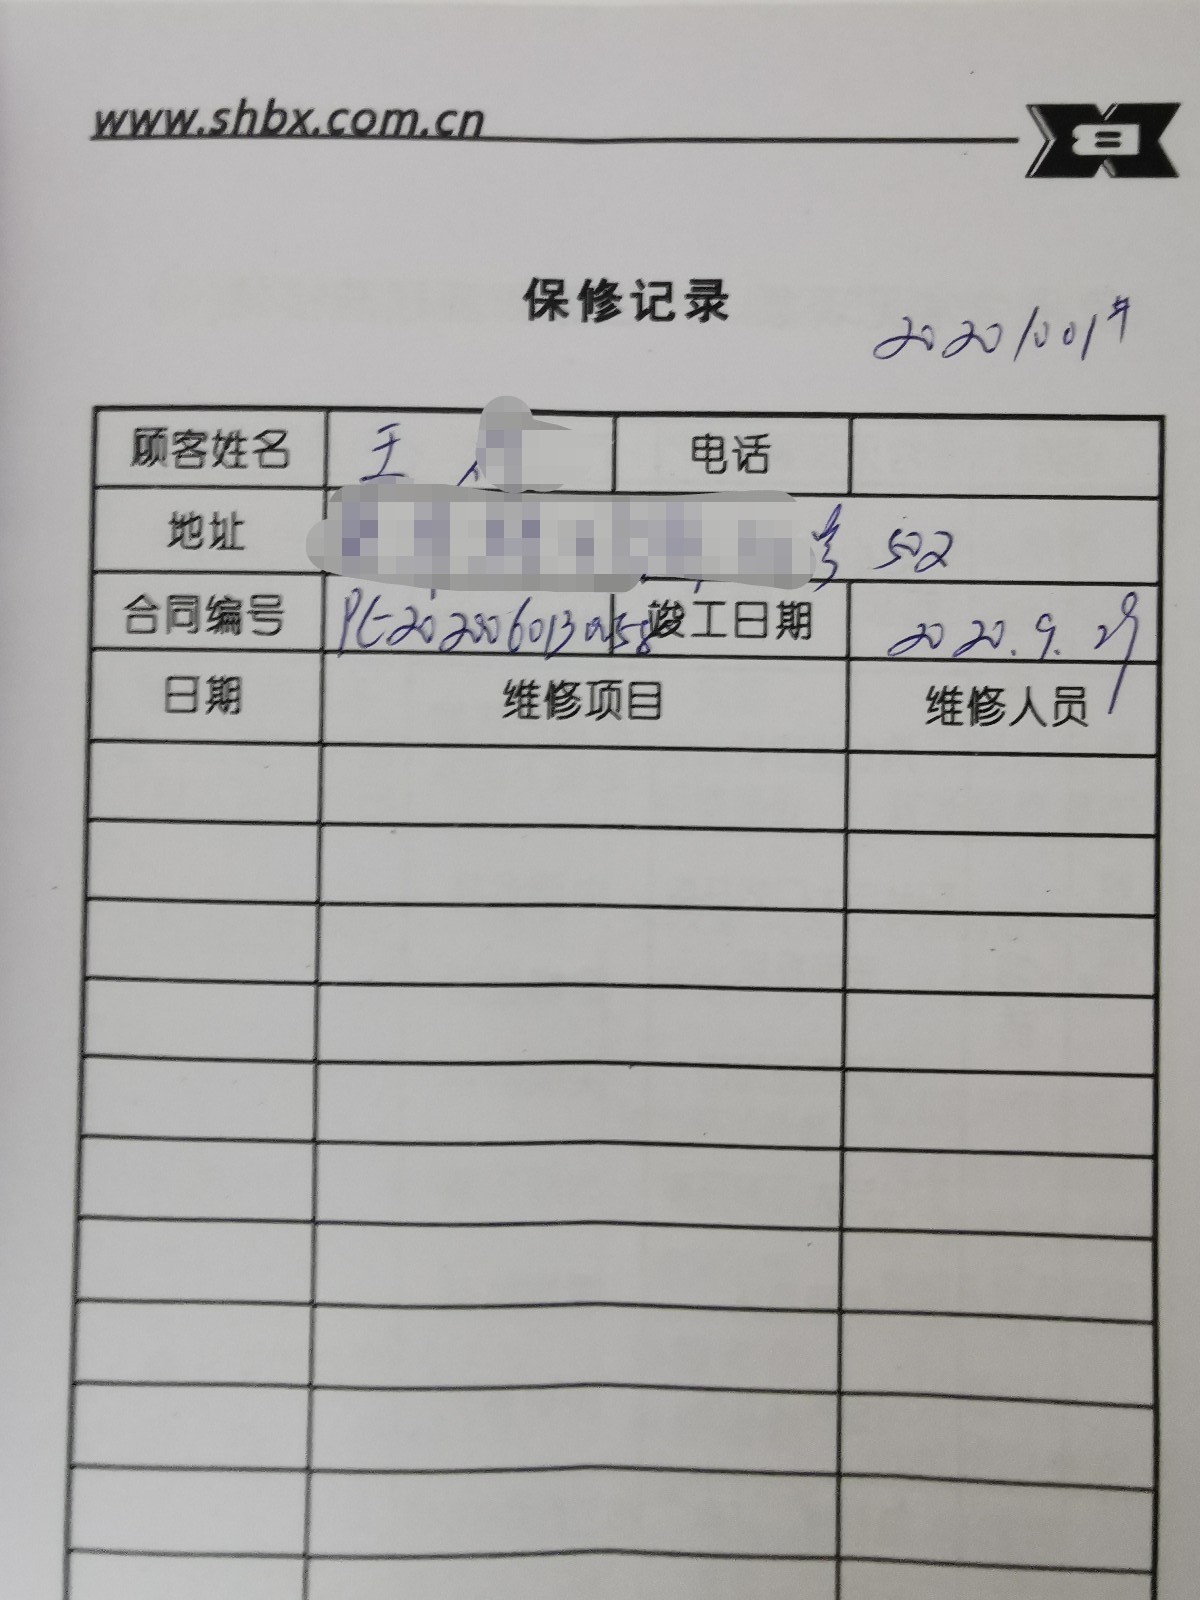 www.shbx.com.cn
保修记录
2020/001#
顾客姓名 王 电话
地址 502
合同编号 竣工日期 2020.9.29
日期 维修项目 维修人员